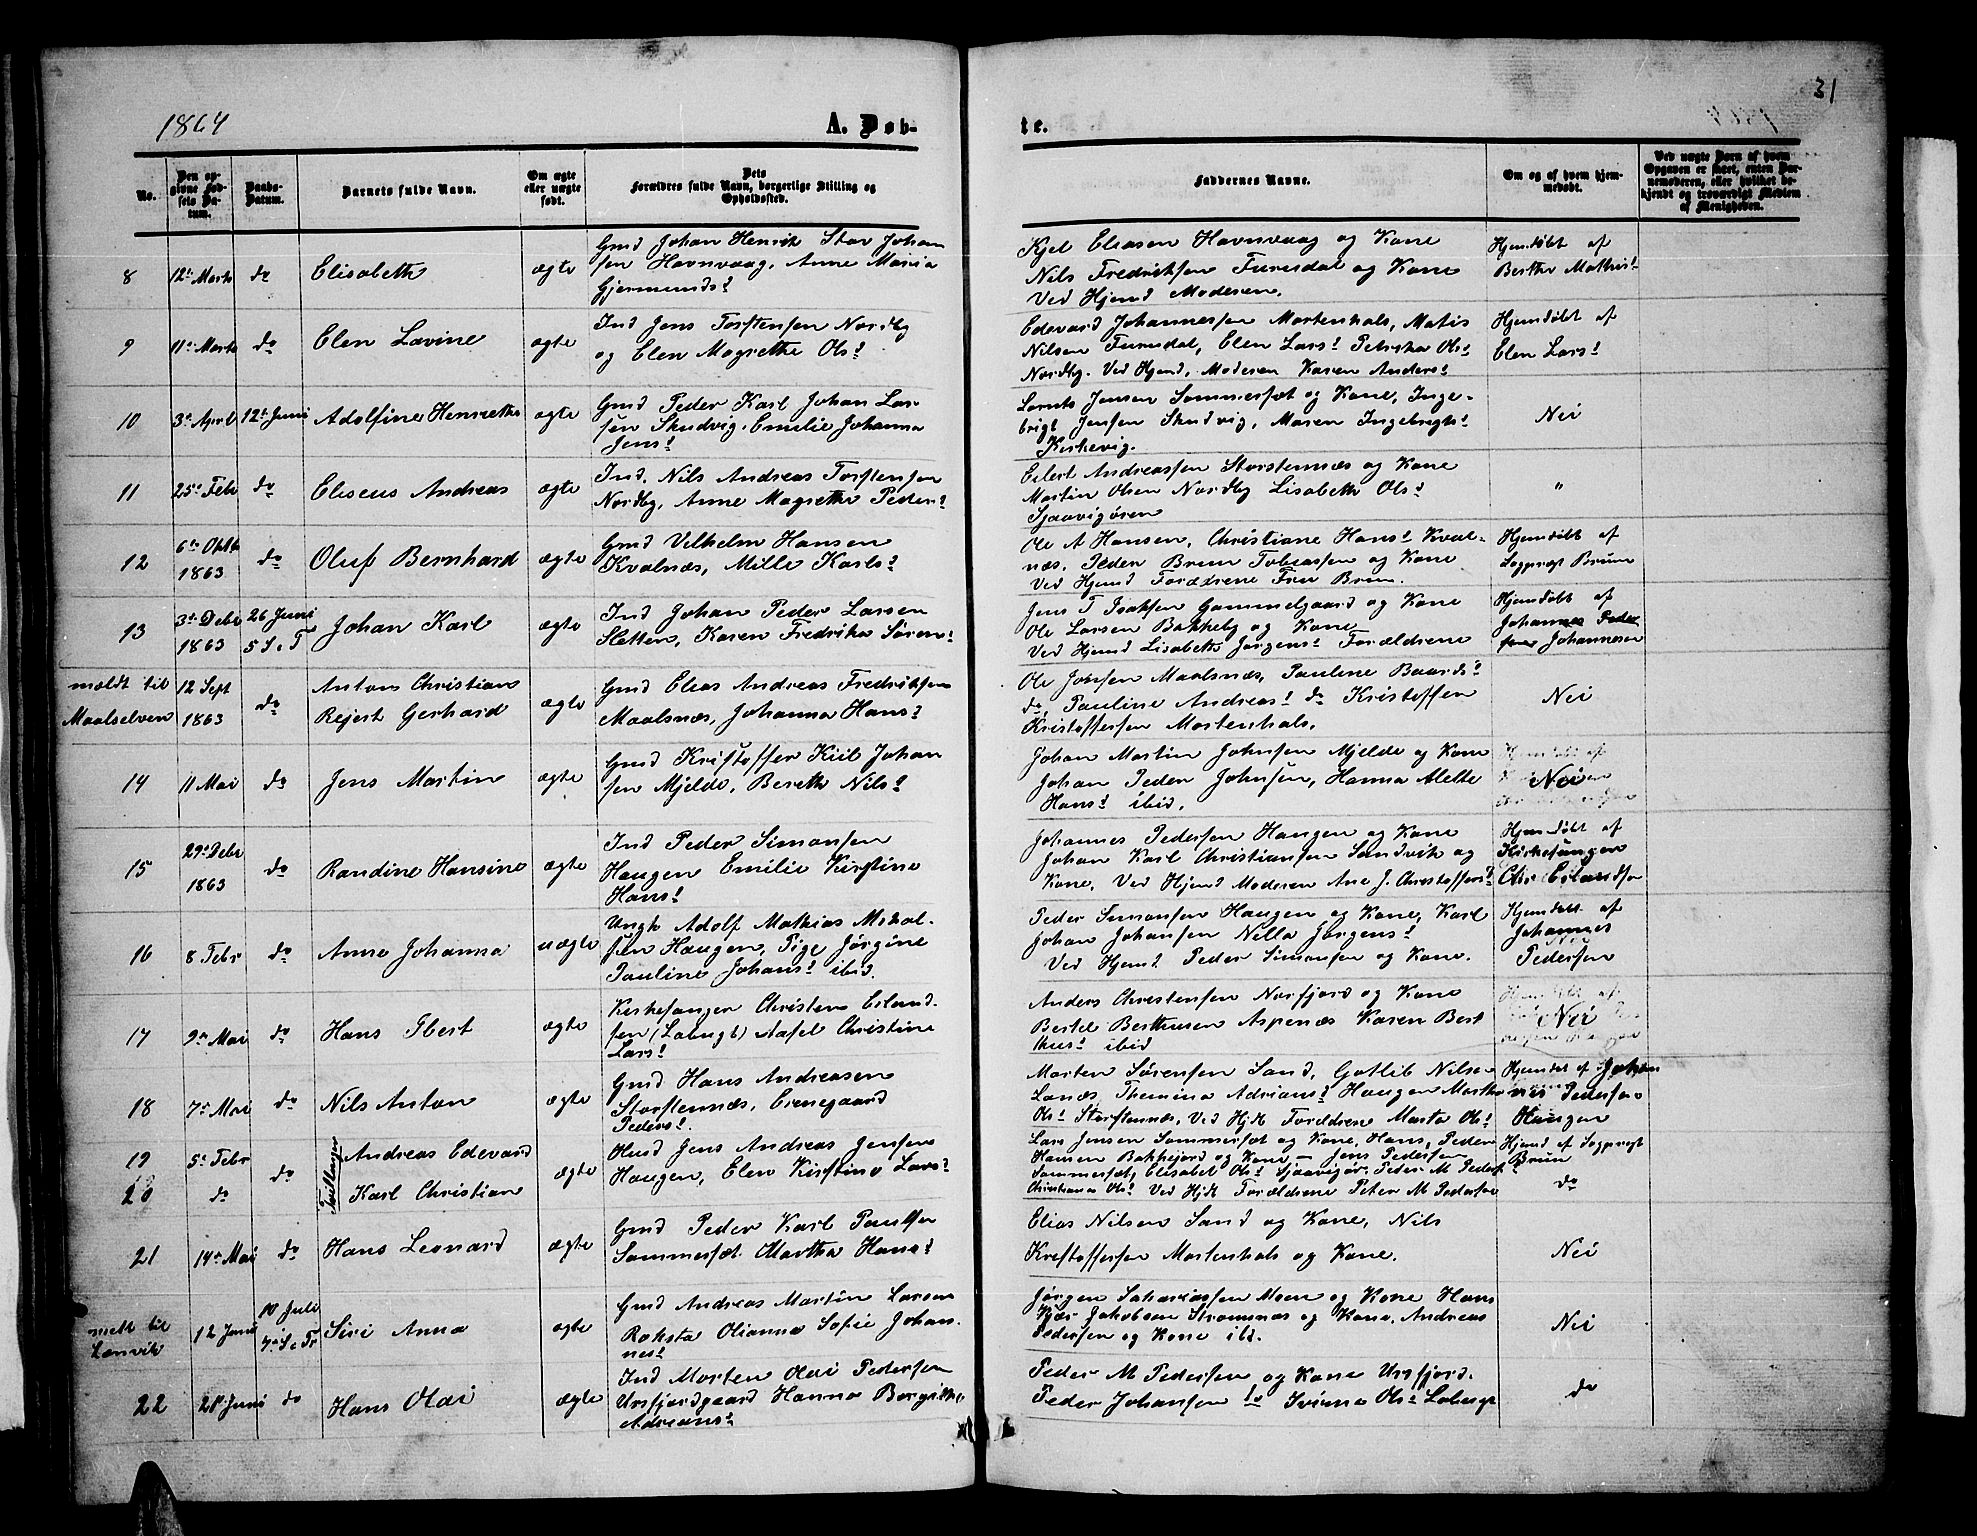 1864
A. Døb-
te.
31
No.
Den op-
givne Fød-
sels Da-
tum.
Daabs-
Datum.
Barnets fulde Navn.
Om ægte
eller uægte
født.
Dets
Forældres fulde Navn, borgerlige Stilling og
Opholdssted.
Faddernes Navne.
Om og af hvem hjem-
medøbt.
Ved uægte Barn af hvem
Opgaven er skeet, enten Bar-
nemoderen, eller hvilket be-
kjendt og troværdigt Medlem
af Menigheden.
8 12te Marts do Elisabeth ægte
Gmd Johan Henrik Stav Johan
sen Havnvaag, Anne Maria
Gjermundsd
Kjel Eliasen Havnvaag og Kone
Nils Fredriksen Furudal og Kone
Ved Hjemd Moderen.
Hjemdøbt af
Berthe Mathisd
9 11te Marts do Elen Lovine ægte
Ind Jens Torstensen Nordby
og Elen Magrethe Olsd
Edevard Johannessen Mortenhals, Matis
Nilsen Furudal, Elen Larsd Petrikke Olsd
Nordby. Ved Hjemd, Moderen Karen Andersd
Hjemdøbt af
Elen Larsd
10 3de April 12te Juni Adolfine Henriette ægte
Gmd Peder Karl Johan Lar-
sen Skudvig, Emilie Johanna
Jensd
Lornts Jensen Sommersæt og Kone, Inge-
brigt Jensen Skudvig, Maren Ingebrigtsd
Kirkevig.
Nei
11 25de Febr do Eliseus Andreas ægte
Ind. Nils Andreas Torstensen
Nordby, Anne Magrethe Pedersd
Eilert Andreassen Storstennæs og Kone
Martin Olsen Nordby Lisabeth Olsd
Sjaavigøren
"
12 6te Oktb 1863 do Oluf Bernhard ægte
Gmd Vilhelm Hansen
Kvalnæs, Mille Karlsd
Ole A Hansen, Christiane Hansd Kval-
næs, Peder Brun Tobiassen og Kone
Ved Hjemd Forældrene Fru Brun.
Hjemdøbt af
Sogprest Brun
13 3de Debr 1863 26 Juni 5 S. e T Johan Karl ægte
Ind Johan Peder Larsen
Sletten, Karen Fredrikke Sørensd
Jens T Isaksen Gammelgaard og Kone
Ole Larsen Bakkeby og Kone
Ved Hjemd Lisabeth Jørgensd Forældrene
Hjemdøbt af
Johannes Peder
Johannesen
mældt til
Maalselven
12 Sept
1863 do
Anton Christian
Rejert Gerhard ægte
Gmd Elias Andreas Fredriksen
Maalsnæs, Johanna Hansd
Ole Johnsen Maalsnæs, Pauline Baardsd
do, Pauline Andreasd do Kristoffer
Kristoffersen Mortenhals.
Nei
14 11 Mai do Jens Martin ægte
Gmd Kristoffer Kiil Johan
sen Mjelde, Bereth Nilsd
Johan Martin Johnsen Mjelde og Kone
Johan Peder Johnsen, Hanna Alette
Hansd ibid.
Nei
15 29de Debr 1863 do Randine Hansine ægte
Ind Peder Simonsen
Haugen Emilie Kirstine
Hansd
Johannes Pedersen Haugen og Kone
Johan Karl Christiansen Sandvik og
Kone, Ved Hjemd Moderen Ane J. Christoffersd
Hjemdøbt af
Kirkesanger
Chr Erlandsen
16 8 Febr do Anne Johanna uægte
Ungk Adolf Mathias Mikal-
sen Haugen, Pige Jørgine
Pauline Johansd ibid.
Peder Simonsen Haugen og Kone, Karl
Johan Johansen Nella Jørgensd
Ved Hjemd Peder Simonsen og Kone.
Hjemdøbt af
Johannes
Pedersen
17 9de Mai do Hans Ibert ægte
Kirkesanger Christen Erland-
sen (Labugt) Aafel Christine
Larsd
Anders Christensen Norfjord og Kone
Bertel Berthusen Aspenæs Karen Bert
husd ibid
Nei
18 7de Mai do Nils Anton ægte
Gmd Hans Andreasen
Storstennæs, Erenegaard
Pedersd
Morten Sørensen Sand, Gotlib Nilsen
Lanæs, Themina Adriansd Haugen Martha
Olsd Storstennæs, Ved Hjd Forældrene Marta Olsd
Hjemdøbt af Johan
nes Pedersen
Haugen
19 5te Febr
20 do do
Tvillinger
Andreas Edevard
Karl Christian ægte
Husd Jens Andreas Jensen
Haugen, Elen Kirstine Larsd
Lars Jensen Sommersæt og Kone, Hans, Peder
Hansen Bakkejord og Kone — Jens Pedersen
Sommersæt, Elisabet Olsd Sjaavigør, Peder M Peders
Christiane Olsd Ved Hjd Forældrene Peter M Pedersen
Hjemd af Sogprest
Brun
do
21 14de Mai do Hans Leonard ægte
Gmd Peder Karl Paulsen
Sommersæt Martha Hansd
Elias Nilsen Sand og Kone, Nils
Kristoffersen Mortenhals og Kone.
Nei
melt til
Lenvik
12 Juni 10 Juli 7de S. e Tr Siri Anna ægte
Gmd Andreas Martin Larsen
Roksta Olianna Sofie Johan-
nesd
Jørgen Sakariassen Moen og Kone Hans
Kjær Jakobsen Strømsnæs og Kone, Andreas
Pedersen og Kone ibd.
Nei
22 21de Juni do Hans Olai ægte
Ind Morten Olai Pedersen
Ursfjordgaard Hanna Bergitha
Adriansd
Peder M Pedersen og Kone Ursfjord.
Peder Johansen do Ivinna Olsd Labugt
do